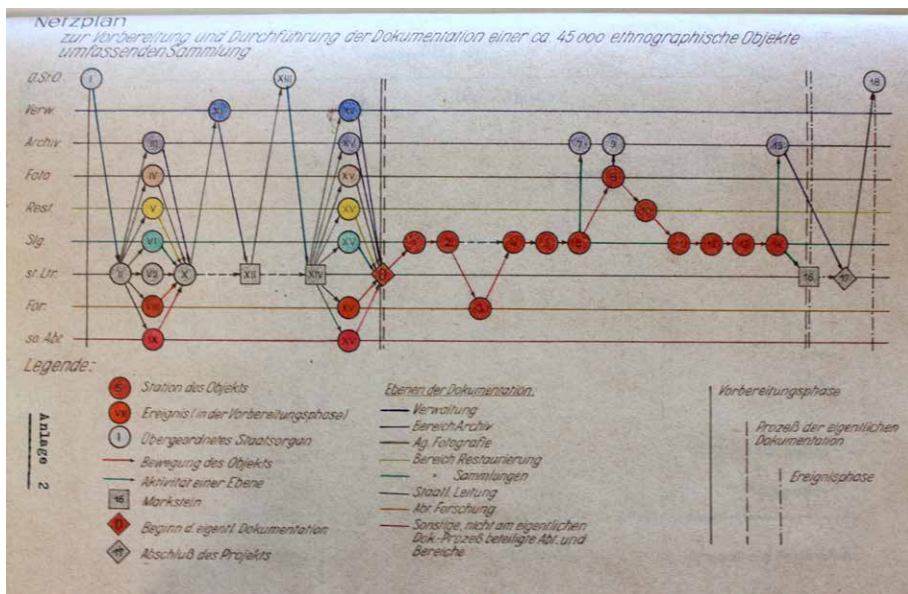 Netzplan
zur Vorbereitung und Durchführung der Dokumentation einer ca. 45 000 ethnographische Objekte
umfassenden Sammlung
ü.St.O.
I
XIII
18
Verw.
XI
XV
Archiv
III
XV
7
9
15
Foto
IV
XV
8
Rest.
V
XV
10
Slg.
VI
XV
1
2
4
5
6
11
12
13
14
st. Ltr.
II
VII
X
XII
XIV
0
16
17
For.
VIII
XV
3
so. Abt.
IX
XV
Legende:
5 Station des Objekts
VIII Ereignis (in der Vorbereitungsphase)
I Übergeordnetes Staatsorgan
Bewegung des Objekts
Aktivität einer Ebene
16 Markstein
0 Beginn d. eigentl. Dokumentation
17 Abschluß des Projekts
Ebenen der Dokumentation:
Verwaltung
Bereich Archiv
Ag. Fotografie
Bereich Restaurierung
" Sammlungen
Staatl. Leitung
Abt. Forschung
Sonstige, nicht am eigentlichen
Dok.-Prozeß beteiligte Abt. und
Bereiche
Vorbereitungsphase
Prozeß der eigentlichen
Dokumentation
Ereignisphase
Anlage 2